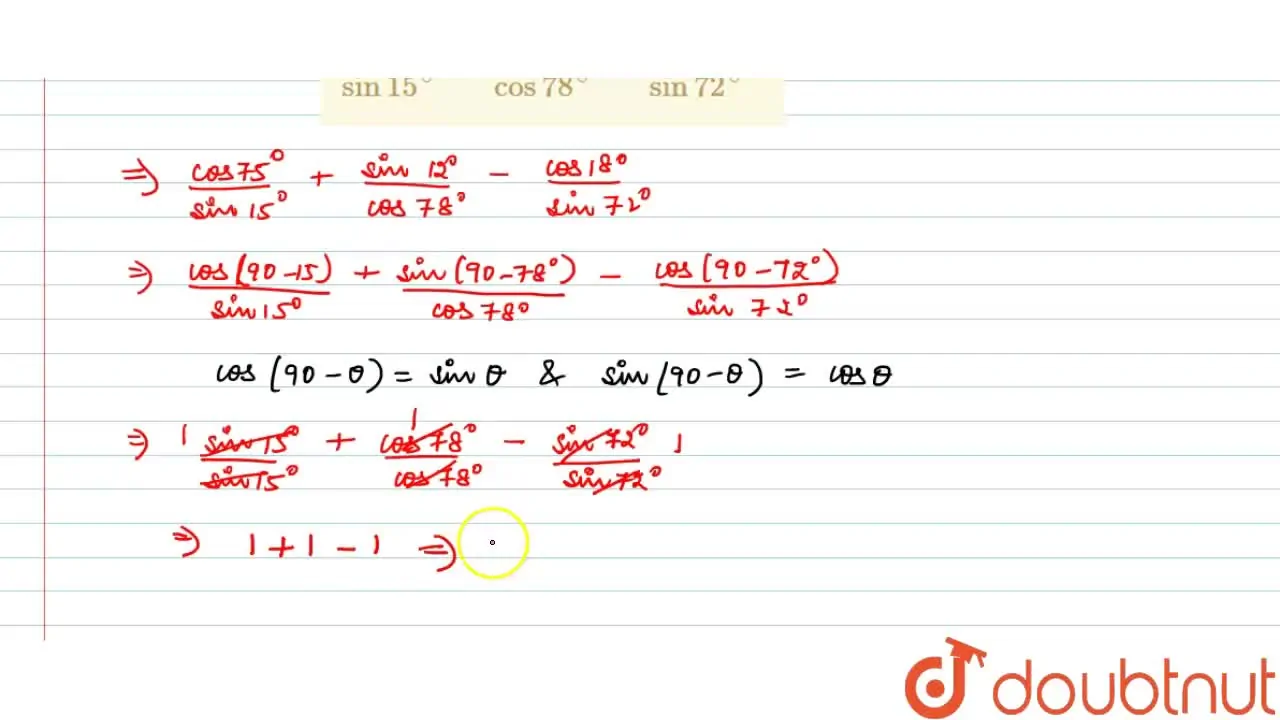 sin 15° cos 78° sin 72°
⇒ cos75°/sin 15° + sin 12°/cos 78° − cos18°/sin 72°
⇒ cos(90−15)/sin15° + sin(90−78°)/cos78° − cos(90−72°)/sin 72°
cos(90−θ) = sinθ & sin(90−θ) = cosθ
⇒ 1 sin 15°/sin15° + 1 cos 78°/cos 78° − sin 72°/sin 72° 1
⇒ 1+1−1 ⇒
doubtnut